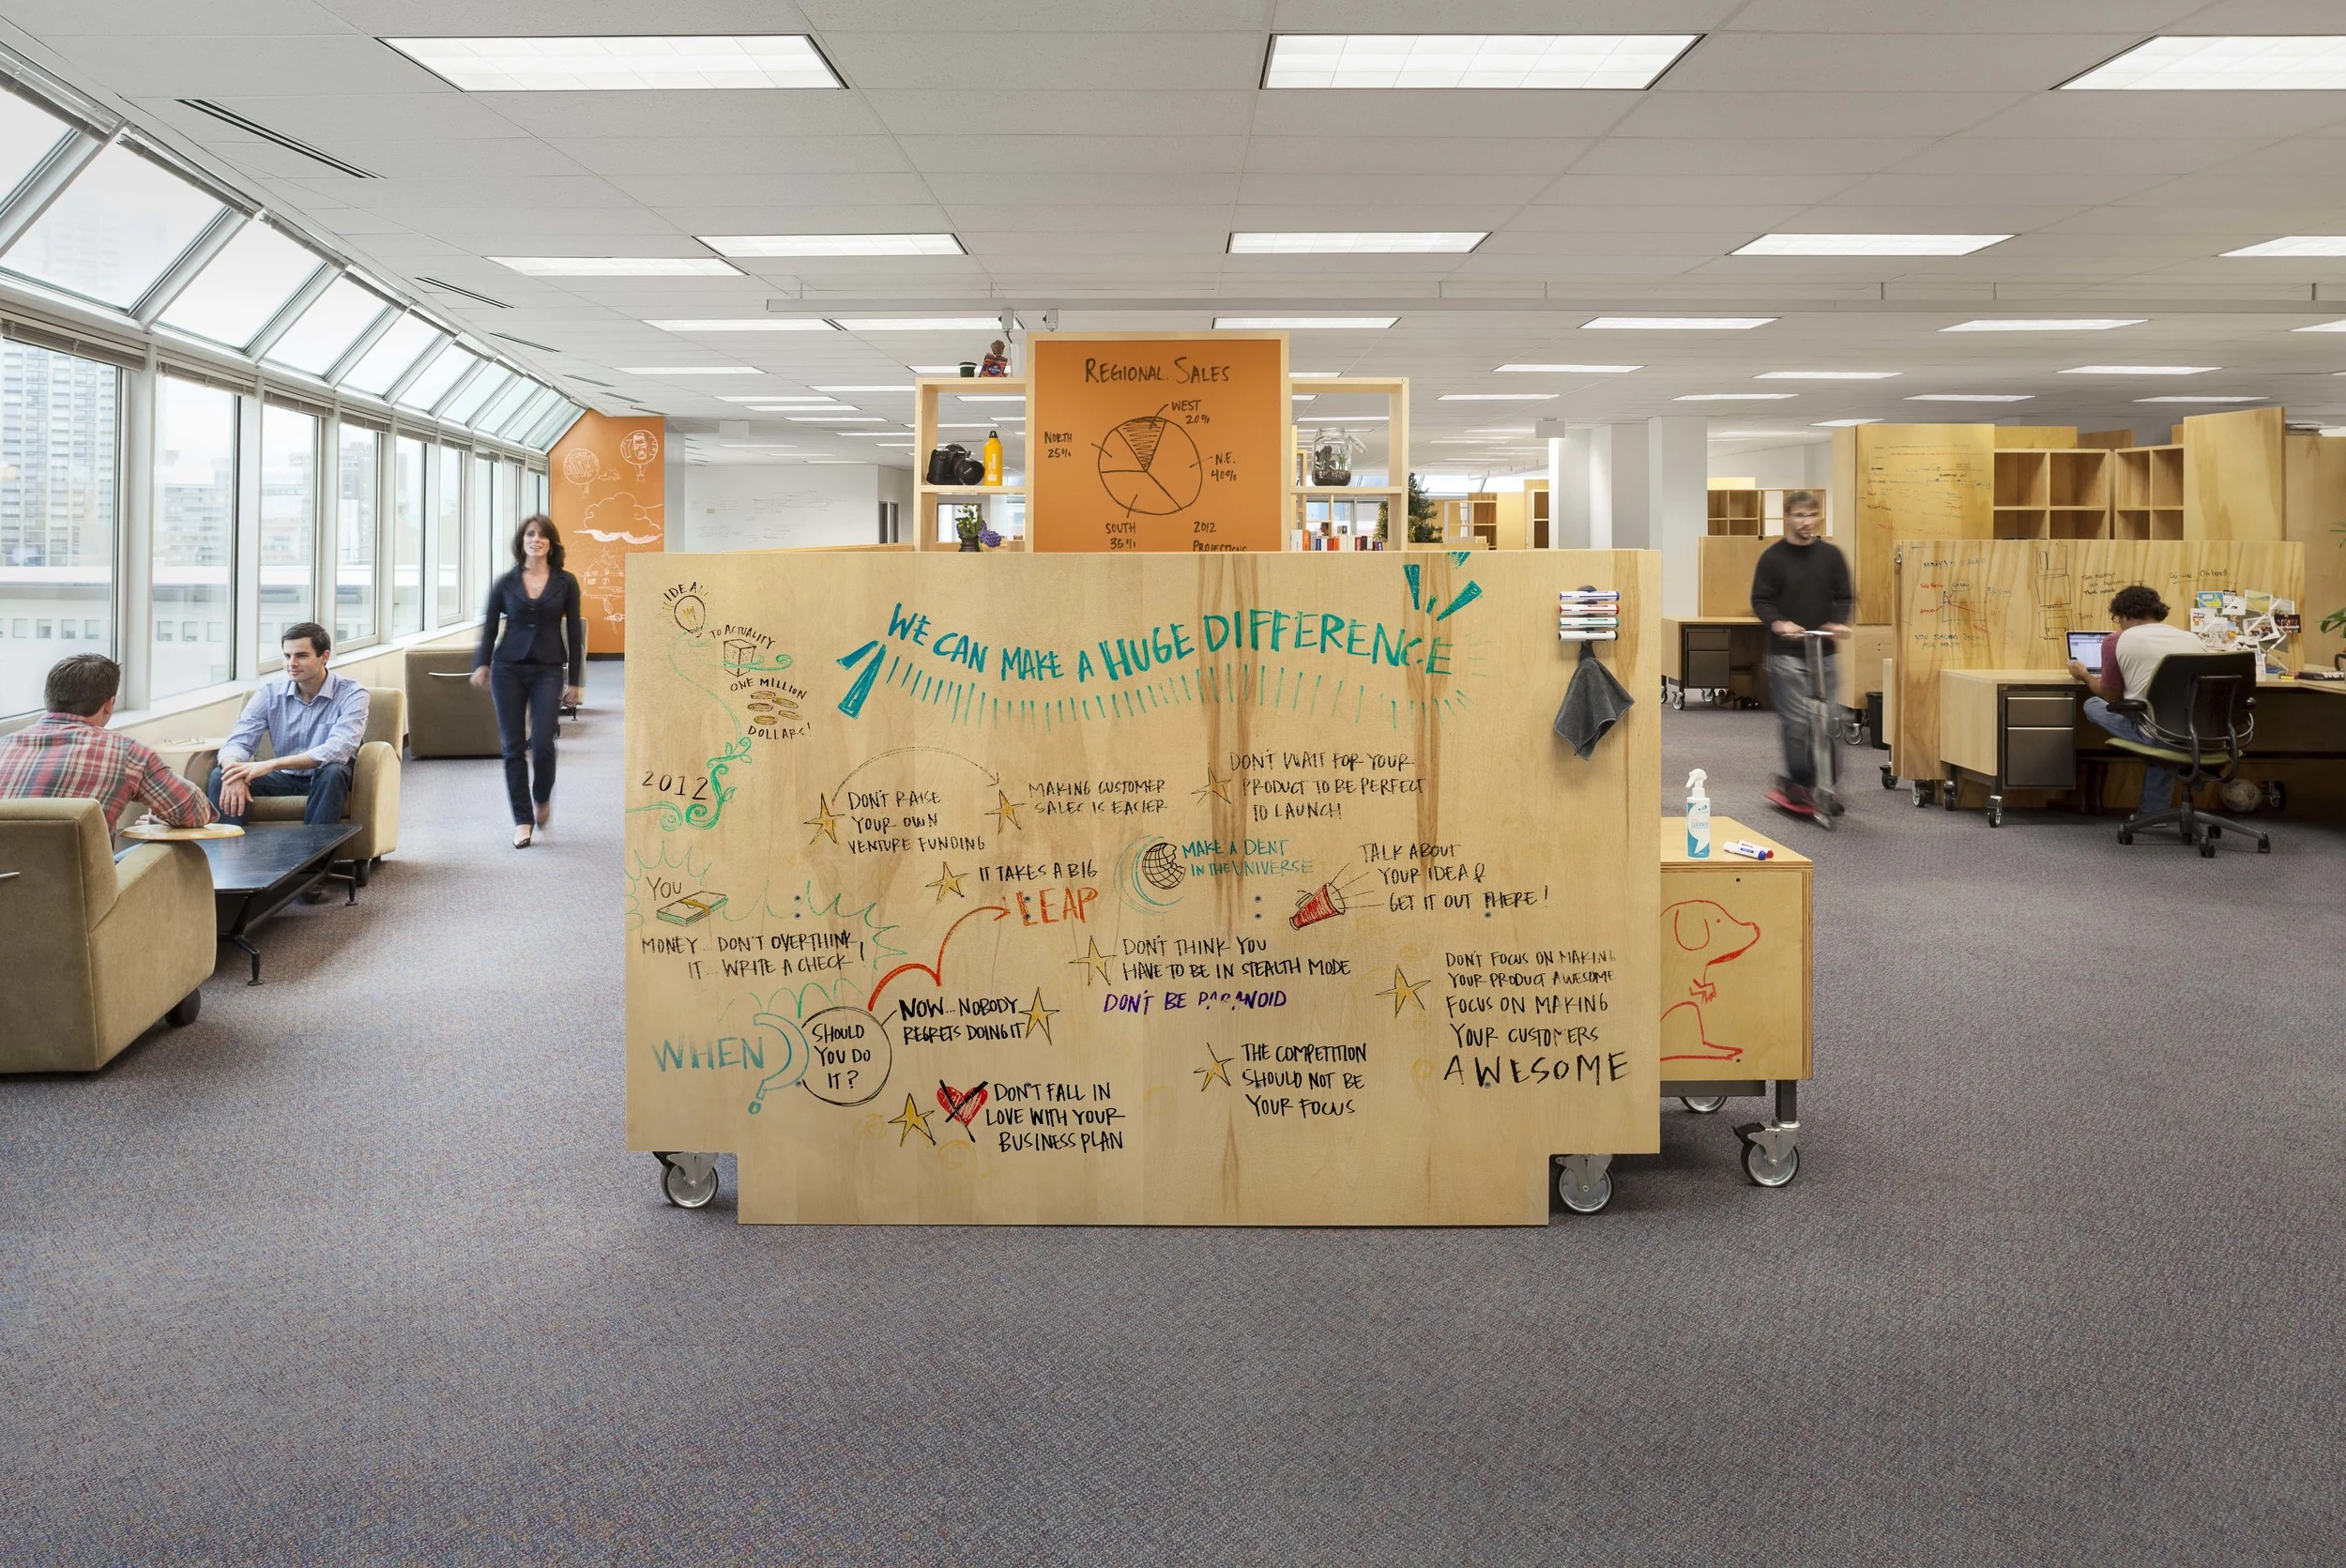 REGIONAL SALES
WEST
20%
NORTH
25%
N.E.
40%
SOUTH
35%
2012
PROJECTIONS
IDEA
TO ACTUALITY
ONE MILLION
DOLLARS!
2012
WE CAN MAKE A HUGE DIFFERENCE
DON'T RAISE
YOUR OWN
VENTURE FUNDING
MAKING CUSTOMER
SALES IS EASIER
DON'T WAIT FOR YOUR
PRODUCT TO BE PERFECT
TO LAUNCH
IT TAKES A BIG
LEAP
MAKE A DENT
IN THE UNIVERSE
TALK ABOUT
YOUR IDEA &
GET IT OUT THERE!
YOU
MONEY... DON'T OVERTHINK
IT... WRITE A CHECK!
DON'T THINK YOU
HAVE TO BE IN STEALTH MODE
DON'T BE PARANOID
DON'T FOCUS ON MAKING
YOUR PRODUCT AWESOME
FOCUS ON MAKING
YOUR CUSTOMERS
AWESOME
WHEN?
SHOULD
YOU DO
IT?
NOW... NOBODY
REGRETS DOING IT
THE COMPETITION
SHOULD NOT BE
YOUR FOCUS
DON'T FALL IN
LOVE WITH YOUR
BUSINESS PLAN